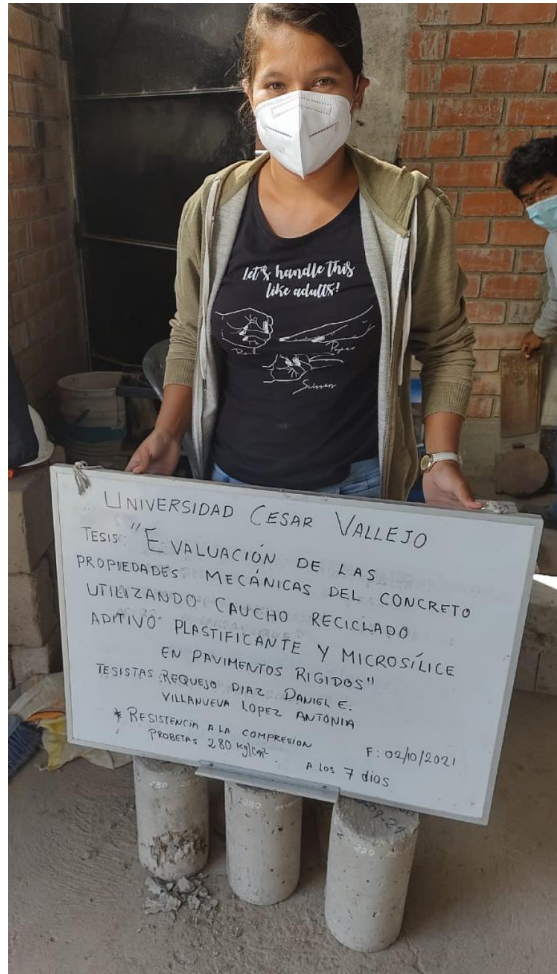 Let's handle this
like adults!
Rock
Paper
Scissors
UNIVERSIDAD CESAR VALLEJO
TESIS: "EVALUACIÓN DE LAS
PROPIEDADES MECÁNICAS DEL CONCRETO
UTILIZANDO CAUCHO RECICLADO
ADITIVO PLASTIFICANTE Y MICROSÍLICE
EN PAVIMENTOS RIGIDOS"
TESISTAS: REQUEJO DIAZ DANIEL E.
VILLANUEVA LOPEZ ANTONIA
* RESISTENCIA A LA COMPRESIÓN
PROBETAS 280 Kg/cm²
F: 02/10/2021
A LOS 7 días
280
280